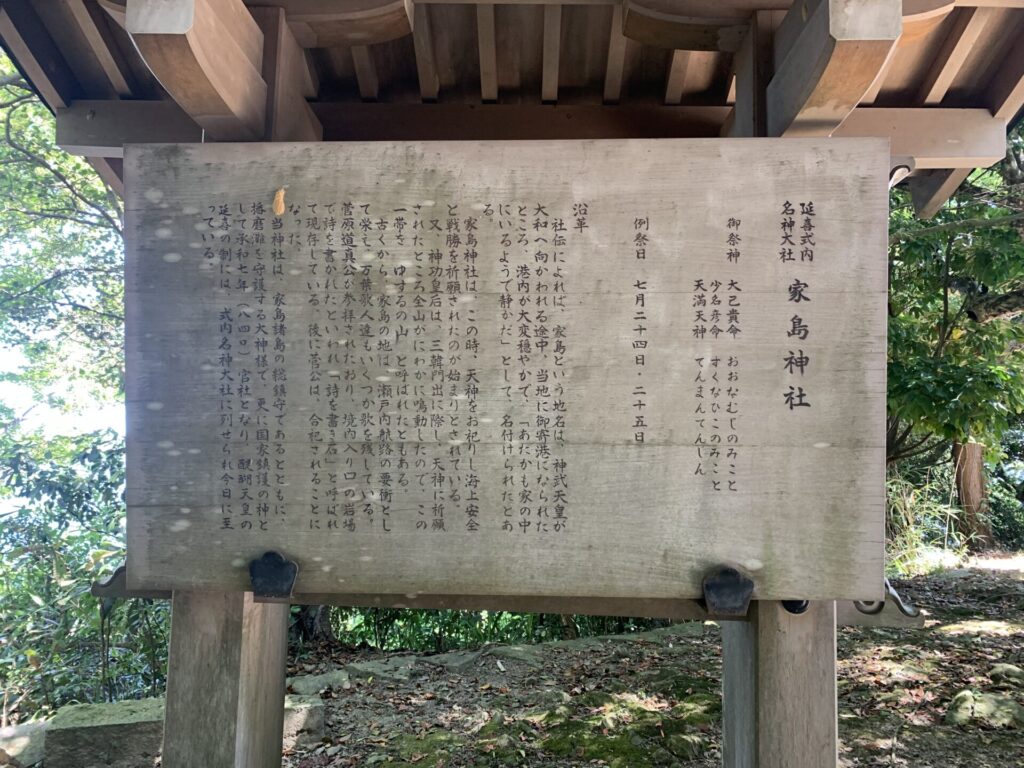 延喜式内
名神大社
家島神社
御祭神 大己貴命 おおなむじのみこと
少名彦命 すくなひこのみこと
天満天神 てんまんてんじん
例祭日 七月二十四日・二十五日
沿革
社伝によれば、家島という地名は、神武天皇が
大和へ向かわれる途中、当地に御寄港になられた
ところ、港内が大変穏やかで、「あたかも家の中
にいるようで静かだ」として、名付けられたとあ
る。
家島神社は、この時、天神をお祀りし海上安全
と戦勝を祈願されたのが始まりとされている。
又、神功皇后は、三韓門出に際し、天神に祈願
されたところ全山がにわかに鳴動したので、この
一帯を「ゆするの山」と呼ばれたともある。
古くから、家島の地は、瀬戸内航路の要衝とし
て栄え、万葉歌人達もいくつか歌を残している。
菅原道真公が参拝されたおり、境内入り口の岩場
で詩を書かれたといわれ「詩を書き石」と呼ばれ
て現存している。後に菅公は、合祀されることに
なった。
当神社は、家島諸島の総鎮守であるとともに、
播磨灘を守護する大神様で、更に国家鎮護の神と
して承和七年(八四〇)官社となり、醍醐天皇の
延喜の制には、式内名神大社に列せられ今日に至
っている。